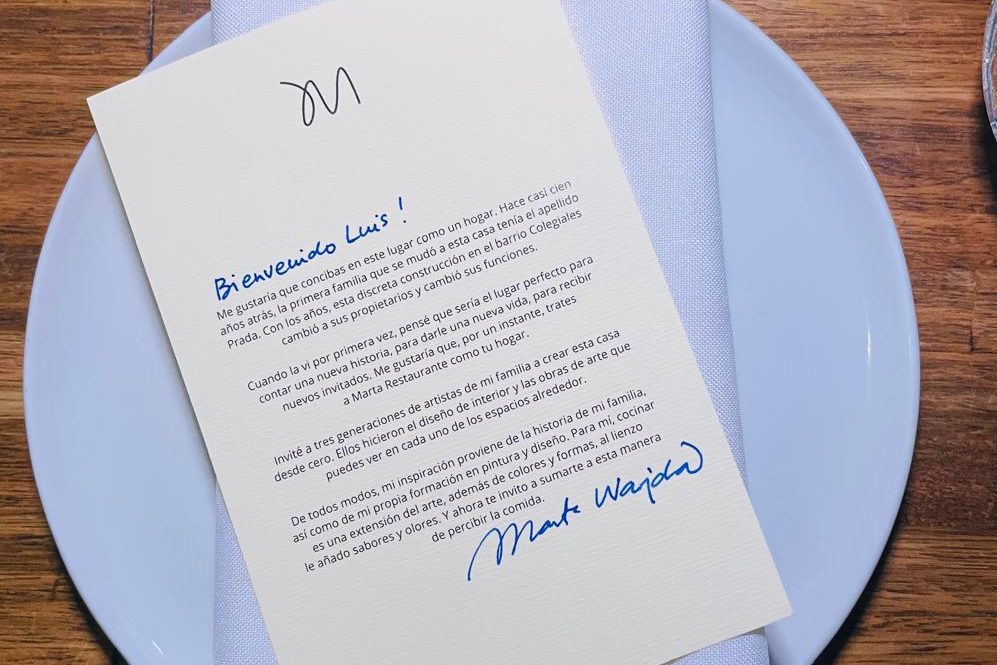 M
Bienvenido Luis!
Me gustaría que concibas en este lugar como un hogar. Hace casi cien
años atrás, la primera familia que se mudó a esta casa tenía el apellido
Prada. Con los años, esta discreta construcción en el barrio Colegiales
cambió a sus propietarios y cambió sus funciones.
Cuando la vi por primera vez, pensé que sería el lugar perfecto para
contar una nueva historia, para darle una nueva vida, para recibir
nuevos invitados. Me gustaría que, por un instante, trates
a Marta Restaurante como tu hogar.
Invité a tres generaciones de artistas de mi familia a crear esta casa
desde cero. Ellos hicieron el diseño de interior y las obras de arte que
puedes ver en cada uno de los espacios alrededor.
De todos modos, mi inspiración proviene de la historia de mi familia,
así como de mi propia formación en pintura y diseño. Para mí, cocinar
es una extensión del arte, además de colores y formas, al lienzo
le añado sabores y olores. Y ahora te invito a sumarte a esta manera
de percibir la comida.
Marta Wajda